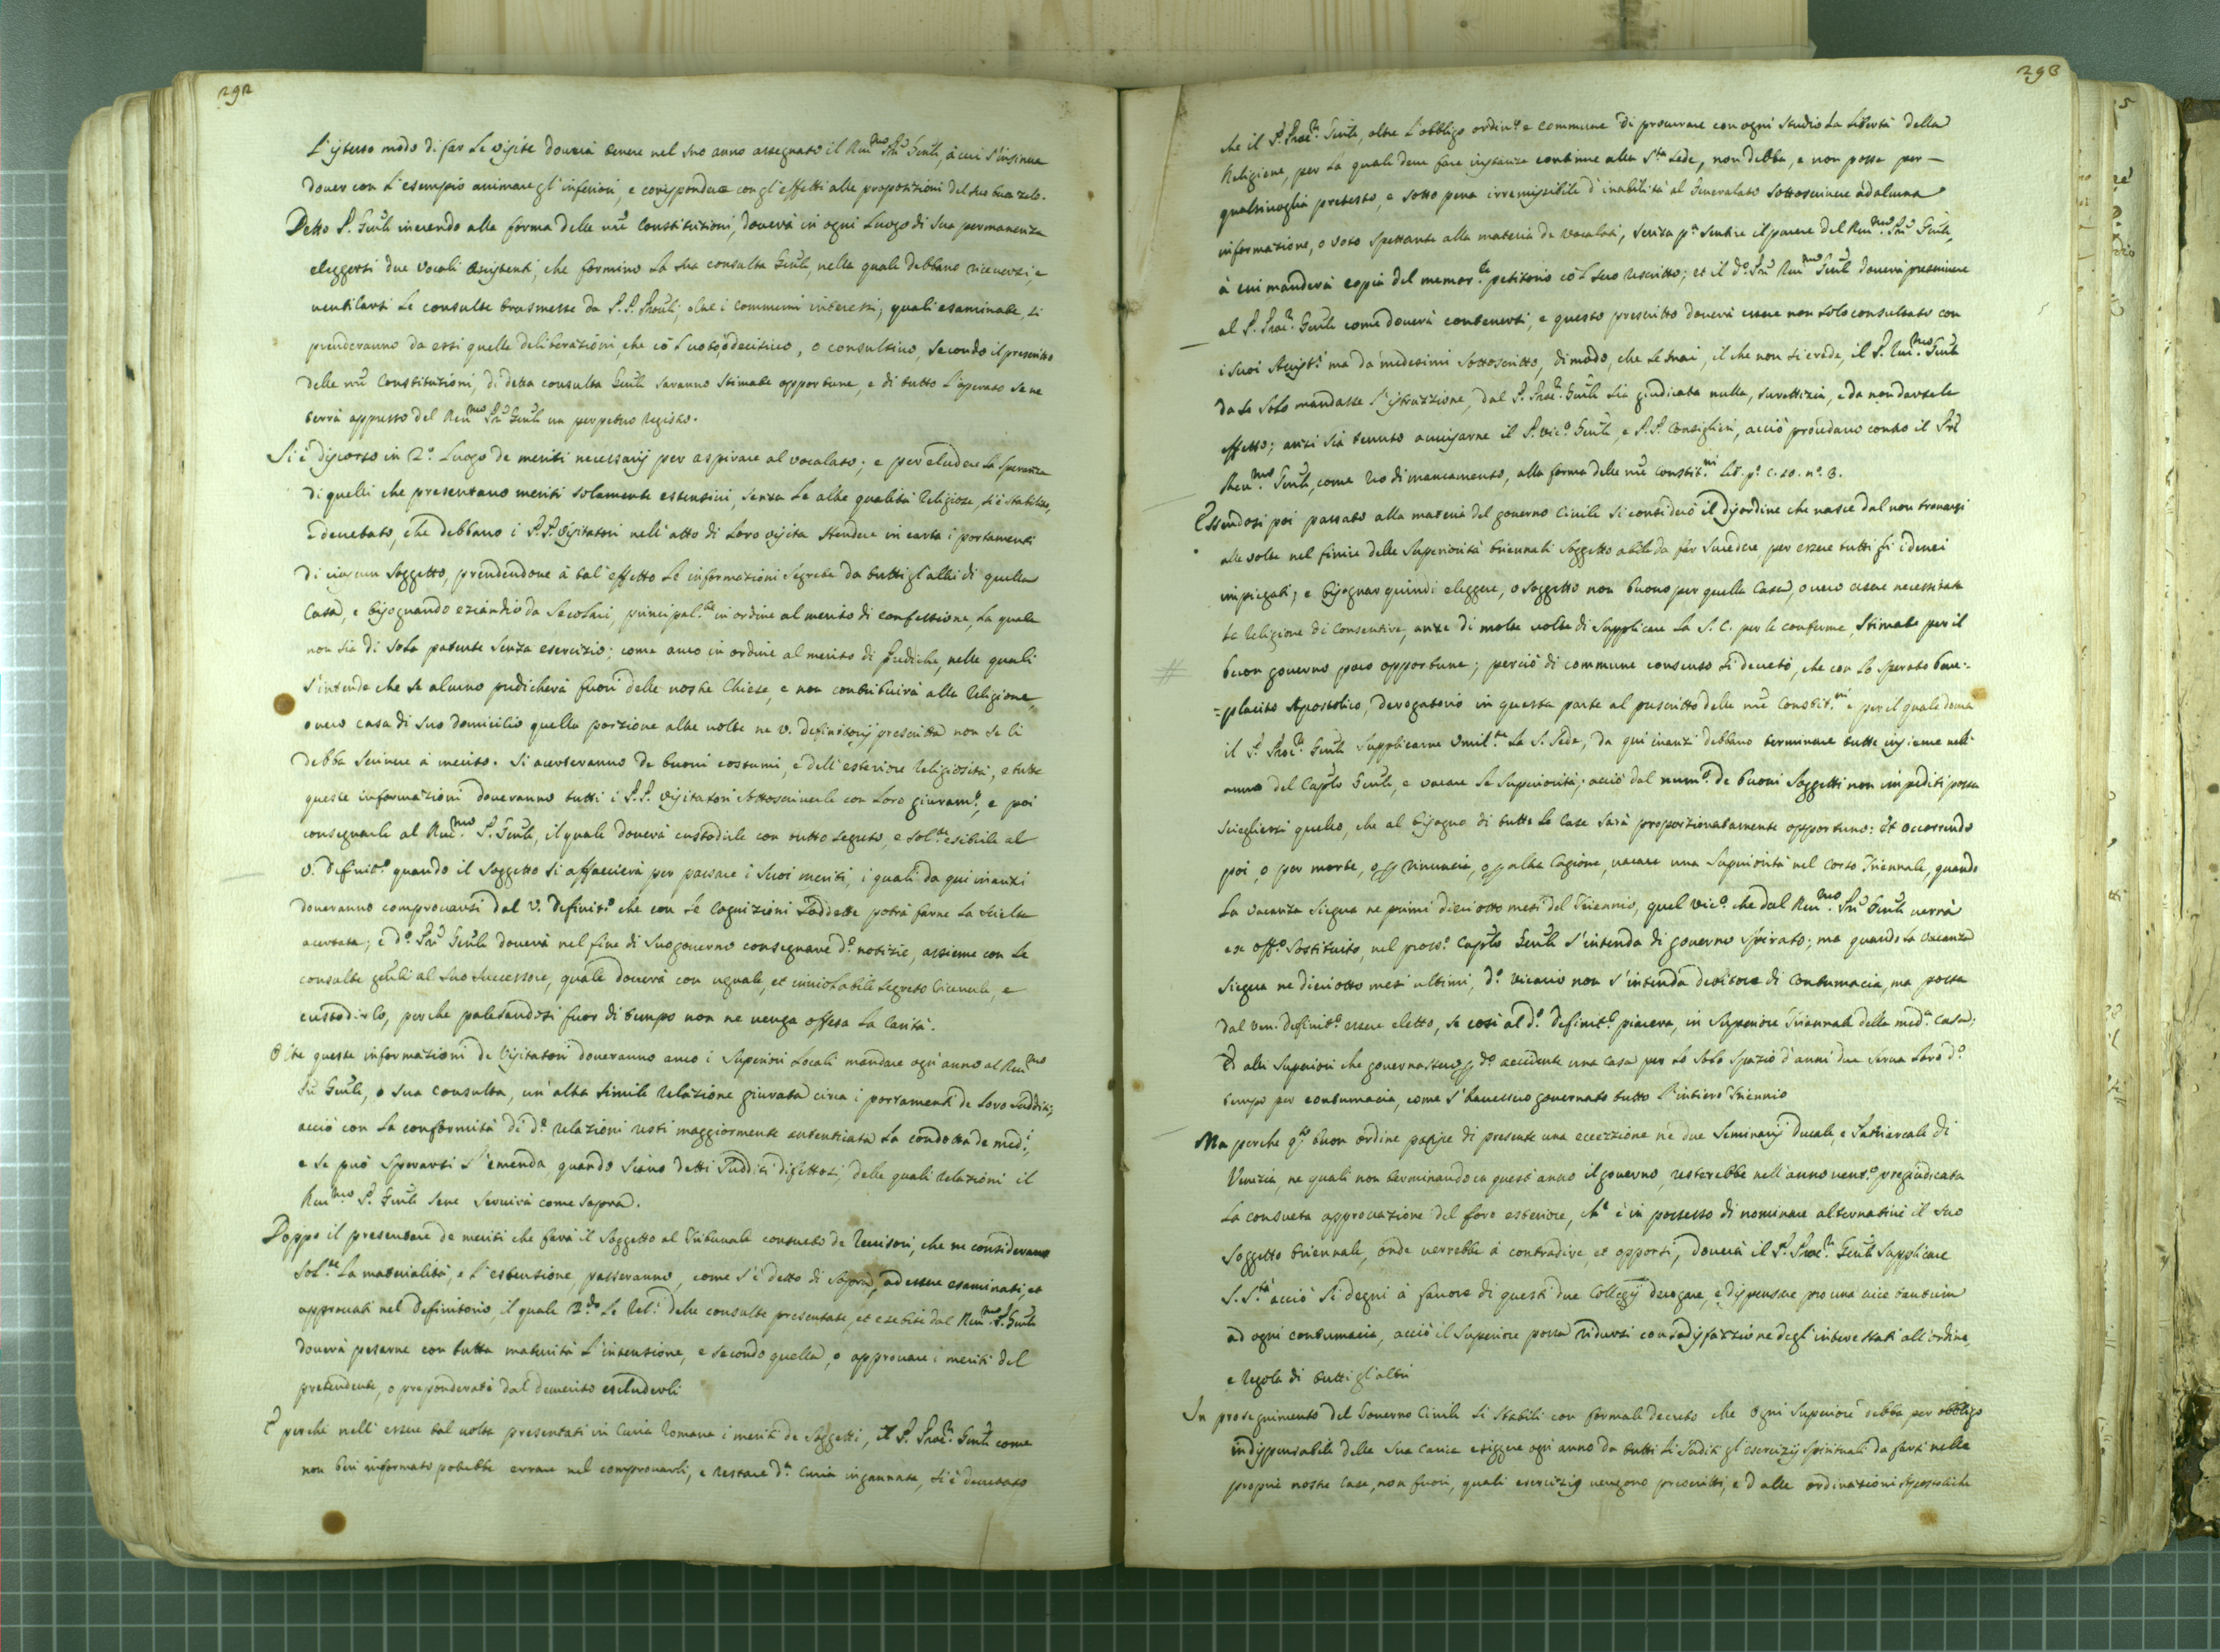 292
L'istesso modo di far le visite dovrà tenere nel suo anno assegnato il Reu.mo Prē Gen̄le, à cui s'insinua
dover con l'esempio animare gl'inferiori, e corrispondere con gl'effetti alle proposizioni del suo buon zelo.
Detto P. Gen̄le inerendo alla forma delle nrē Constitutioni, dovrà in ogni luogo di sua permanenza
eleggersi due vocali assistenti, che formino la sua consulta Gen̄le, nella quale debbano riceversi, e
ventilarsi le consulte trasmesse da P.P. Prou̅li, oltre i communi interessi; quali esaminate, si
prenderanno da essi quelle deliberazioni, che cō l voto, ò decisivo, o consultivo, secondo il prescritto
delle nrē Constitutioni, di detta consulta Gen̄le saranno stimate opportune, e di tutto l'operato se ne
terrà appresso del Reu.mo Prē Gen̄le un perpetuo Registro.
Si è discorso in 2.° luogo de meriti necessarij per aspirare al vocalato; e per eludere la speranza
di quelli che presentano meriti solamente estensivi, senza le altre qualità Religiose, si è stabilito,
e decretato, che debbano i P.P. Visitatori nell'atto di loro visita stendere in carta i portamenti
di ciascun soggetto, prendendone à tal'effetto le informazioni segrete da tutti gl'altri di quella
Casa, e bisognando eziandio da secolari, principal.te in ordine al merito di confessione, la quale
non sia di sola patente senza esercizio; come anco in ordine al merito di Prediche, nelle quali
s'intende che se alcuno predicherà fuori delle nostre Chiese, e non contribuirà alla Religione,
overo casa di suo domicilio quella porzione altre volte ne v. definitorij prescritta non se li
debba scrivere à merito. Si accerteranno de buoni costumi, e dell'esteriore Religiosità, e tutte
queste informazioni doveranno tutti i P.P. Visitatori sottoscriverle con loro giuram.to, e poi
consegnarle al Reu.mo P. Gen̄le, il quale dovrà custodirle con tutto segreto, e sol.te esibirle al
V. Definit.° quando il soggetto si affaccierà per passare i suoi meriti, i quali da qui inanzi
doveranno comprovarsi dal V. Definit.° che con le cognizioni suddette potrà farne la scielta
accertata; e d.° Prē Gen̄le dovrà nel fine di suo governo consegnare d.e notizie, assieme con le
consulte gen̄li al suo successore, quale dovrà con uguale, et inviolabile segreto riceverle, e
custodirlo, perche palesandosi fuor di tempo non ne venga offesa la Carità.
Oltre queste informazioni de Visitatori doveranno anco i Superiori locali mandare ogn'anno al Reu.mo
Prē Gen̄le, o sua consulta, un'altra simile relazione giurata circa i portamenti de loro Sudditi,
acciò con la conformità di d.e relazioni resti maggiormente autenticata la condotta de med.i,
e se può sperarsi l'emenda quando siano detti Sudditi difettosi, delle quali relazioni il
Reu.mo P. Gen̄le sene servirà come sopra.
Doppo il presentare de meriti che farà il soggetto al Tribunale consueto de Revisori, che ne considerano
sol.te la materialità, e l'estensione, passeranno, come s'è detto di sopra, ad essere esaminati, et
approvati nel Definitorio, il quale le Rel.i delle consulte presentate, et esebite dal Reu.mo P. Gen̄le
dovrà pesarne con tutta maturità l'intensione, e secondo quella, o approvare i meriti del
pretendente, o preponderati dal demerito escluderli
E perche nell'essere tal volta presentati in Curia Romana i meriti de Soggetti, il P. Proc.re Gen̄le come
non ben informato potrebbe errare nel comprovarli, e restare d.a Curia ingannata, si è decretato
293
che il P. Proc.re Gen̄le, oltre l'obbligo ordin.° e commune di procurare con ogni studio la libertà della
Religione, per la quale deve fare instanze continue alla S.ta Sede, non debba, e non possa per
qualsivoglia pretesto, e sotto pena irremissibile d'inabilità al Generalato sottoscrivere ad alcuna
informazione, o voto spettante alla materia de vocalati, senza p.a sentire il parere del Reu.mo Prē Gen̄le,
à cui manderà copia del memor.le petitorio cō l suo rescritto; et il d.° Prē Reu.mo Gen̄le dovrà prescrivere
al P. Proc.re Gen̄le come dovrà contenersi, e questo prescritto dovrà essere non solo consultato con
i suoi Assist.i ma da medesimi sottoscritto, di modo, che se mai, il che non si crede, il P. Reu.mo Gen̄le
da se solo mandasse l'istruzzione, dal P. Proc.re Gen̄le sia giudicata nulla, surrettizia, e da non darsele
effetto; anzi sia tenuto avvisarne il P. Vic.° Gen̄le, e P.P. Consiglieri, acciò procedano contro il Prē
Reu.mo Gen̄le, come reo di mancamento, alla forma delle nrē Constit.ni lib. p.° c. 10. n.° 3.
Essendosi poi passato alla materia del governo Civile si considerò il disordine che nasce dal non trovarsi
alle volte nel finire delle Superiorità triennali soggetto abile da far succedere, per essere tutti gli idonei
impiegati; e bisognar quindi eleggere, o soggetto non buono per quella Casa, overo essere necessitata
la Religione di consentire, anze di molte volte di supplicare la S. C. per le conferme, stimate per il
buon governo poco opportune; perciò di commune consenso si decretò, che con lo sperato bene=
=placito Apostolico, derogatorio in questa parte al prescritto delle nrē Constit.ni e per il quale dovrà
il P. Proc.re Gen̄le supplicarne Umil.te la S. Sede, da qui inanzi debbano terminare tutte insieme nell'
anno del Cap̄lo Gen̄le, e vacare le Superiorità; acciò dal num.° de buoni Soggetti non impediti possa
scieglersi quello, che al bisogno di tutte le Case sarà proporzionatamente opportuno: Et occorrendo
poi, o per morte, o per rinuncia, o per altra Cagione, vacare una Superiorità nel Corso Triennale, quando
la vacanza siegua ne primi dieciotto mesi del Triennio, quel Vic.° che dal Reu.mo Prē Gen̄le verrà
ex off.° sostituito, nel pross.° Cap̄lo Gen̄le s'intenda di governo spirato; ma quando la vacanza
siegua ne dieciotto mesi ultimi, d.° Vicario non s'intenda debitore di contumacia, ma possa
dal Ven. Definit.° essere eletto, se così al d.° Definit.° piacerà, in Superiore Triennale della med.a Casa;
Ed altri Superiori che governassero per d.° accidente una Casa per lo solo spazio d'anni due serva loro d.°
tempo per contumacia, come s'havessero governato tutto l'intiero Triennio
Ma perche q.sto buon ordine patisce di presente una eccezzione ne due Seminarij Ducale e Patriarcale di
Venezia, ne quali non terminando in quest'anno il governo, resterebbe nell'anno vent.° pregiudicata
la consueta approvazione del foro esteriore, ch'è in possesso di nominare alternative il suo
Soggetto triennale, onde verrebbe à contradire, et opporsi, dovrà il P. Proc.re Gen̄le supplicare
S. S.tà acciò si degni à favore di questi due Collegij derogare, e dispensare pro una vice tantum
ad ogni contumacia, acciò il Superiore possa ridursi con sodisfazzione degl'interessati all'ordine,
e regola di tutti gl'altri
In proseguimento del Governo Civile si stabilì con formale decreto che Ogni Superiore debba per obbligo
indispensabile della sua carica esiggere ogni anno da tutti li Sudditi gl'esercizij spirituali da farsi nelle
proprie nostre Case, non fuori, quali esercizij vengono prescritti, e dalle ordinazioni Apostoliche